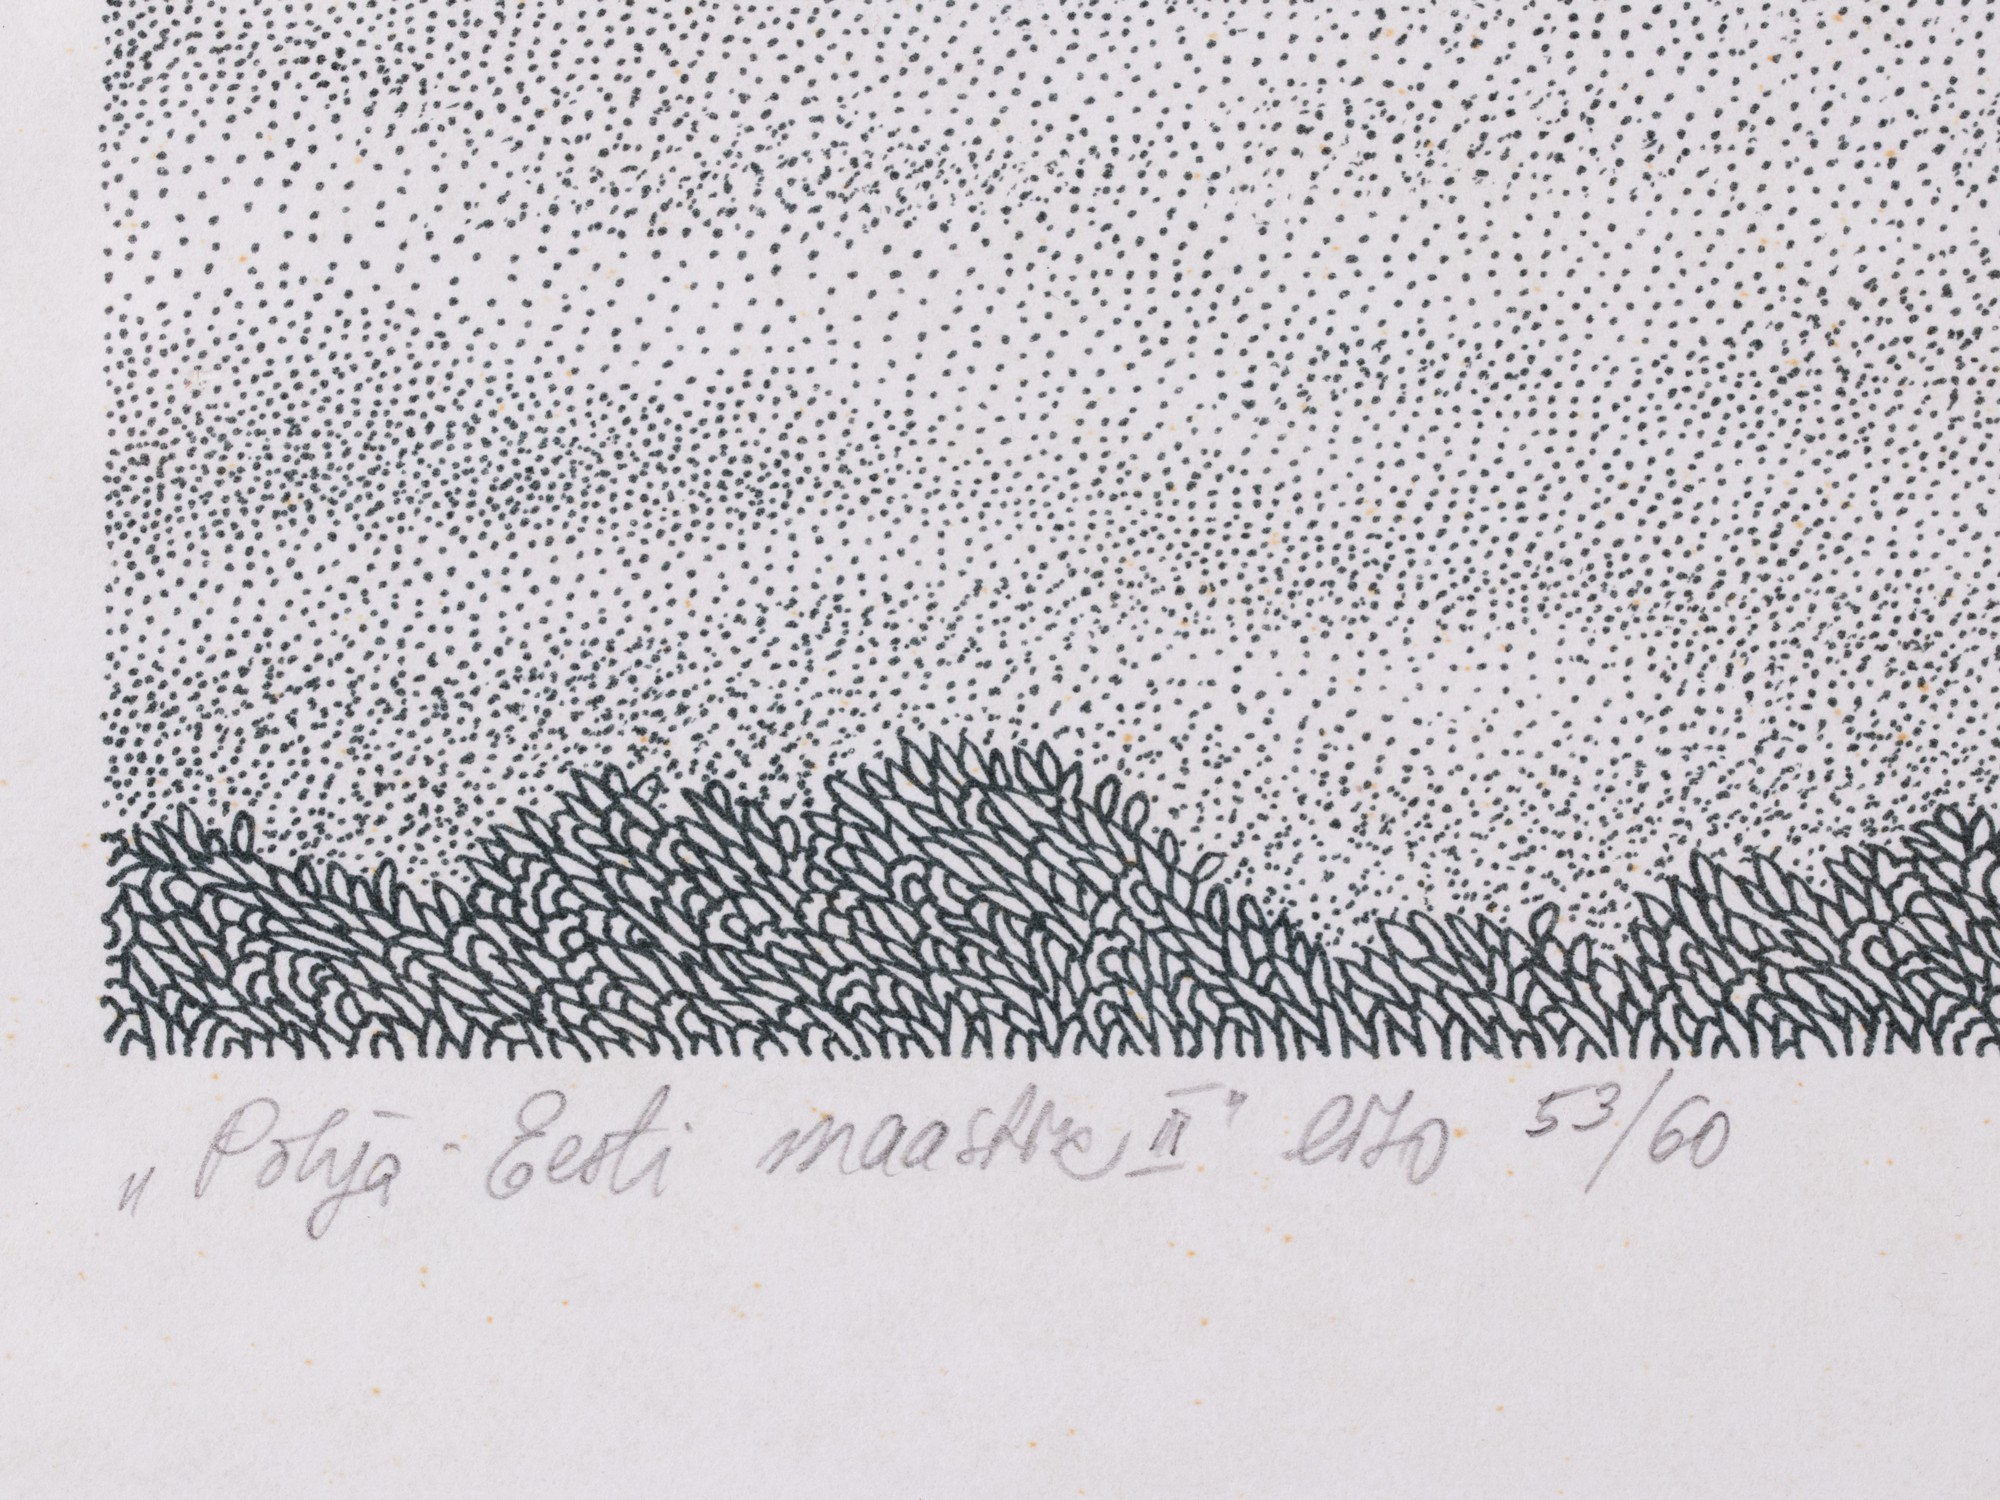 „Põhja-Eesti maastik II" lito 53/60